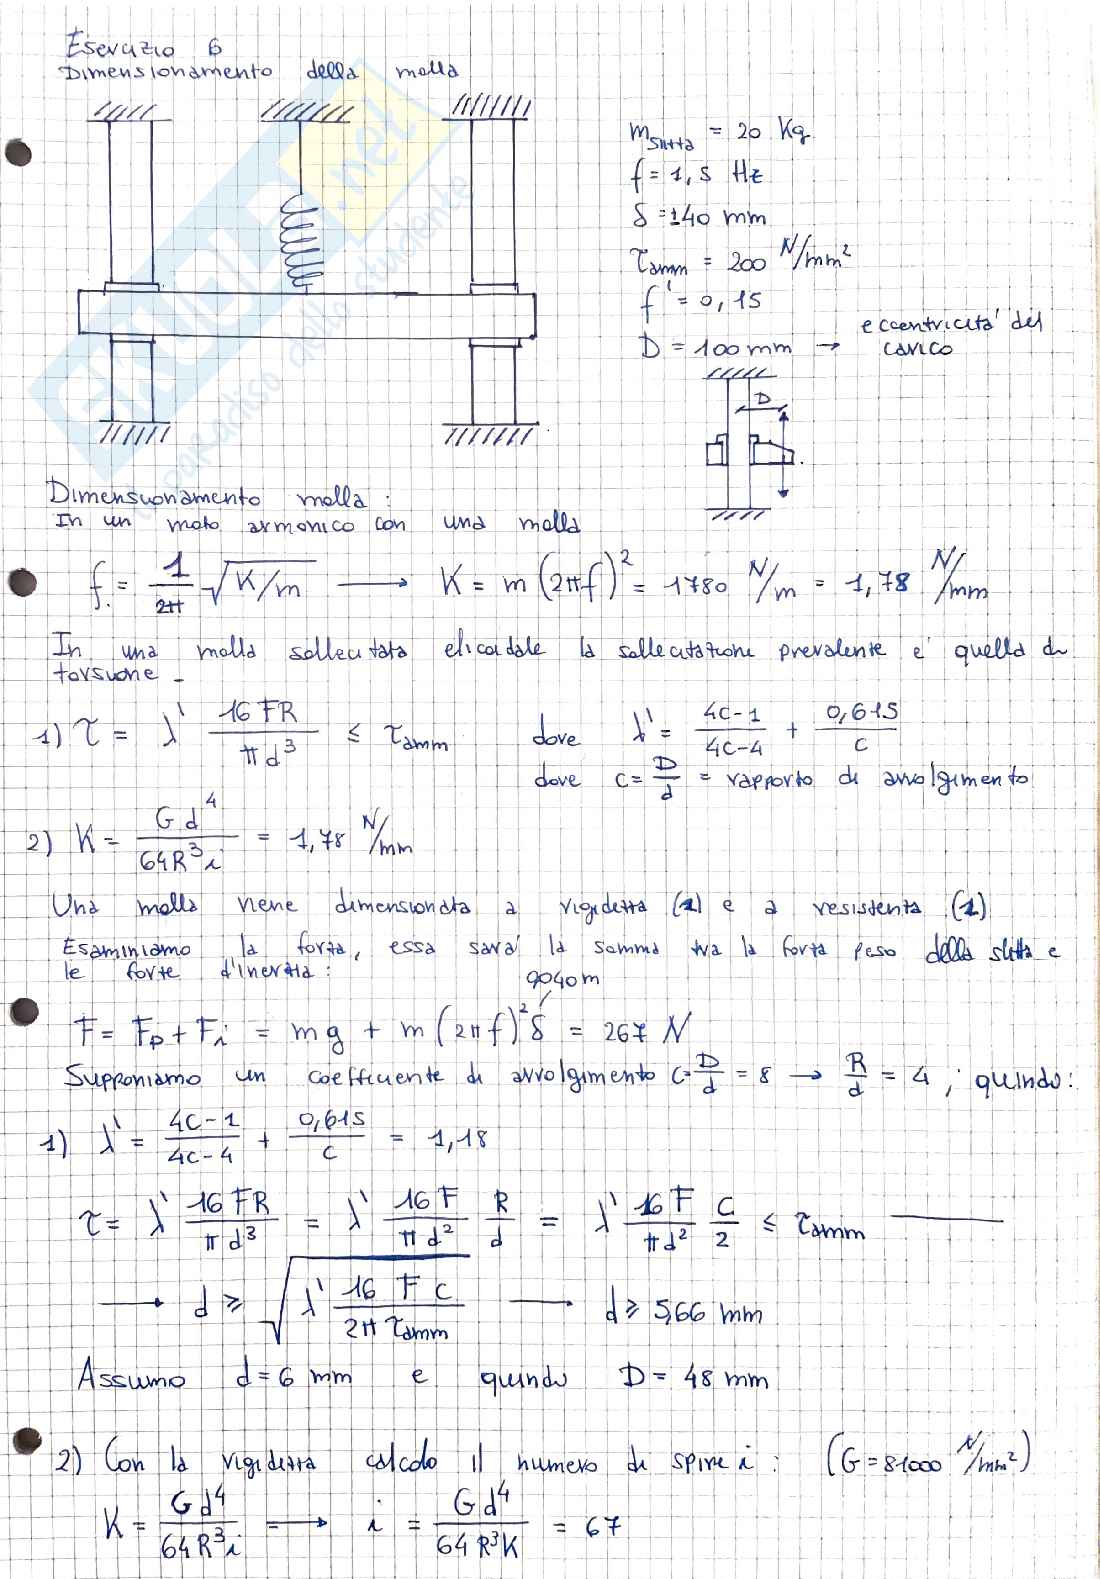 Esercizio 6
Dimensionamento della molla
m_slitta = 20 Kg
f = 1,5 Hz
δ = ±40 mm
τ_amm = 200 N/mm²
f' = 0,15
D = 100 mm → eccentricità del carico
D
SKUOLA.net
il paradiso dello studente
Dimensionamento molla:
In un moto armonico con una molla
f = 1/2π √(K/m) → K = m (2πf)² = 1780 N/m = 1,78 N/mm
In una molla sollecitata elicoidale la sollecitazione prevalente e' quella di
torsione -
1) τ = λ' 16 FR / π d³ ≤ τ_amm dove λ' = (4C-1)/(4C-4) + 0,615/C
dove C = D/d = rapporto di avvolgimento
2) K = G d⁴ / 64R³i = 1,78 N/mm
Una molla viene dimensionata a rigidezza (2) e a resistenza (1)
Esaminiamo la forza, essa sarà la somma tra la forza peso della slitta e
le forze d'inerzia:
9040 m
F = Fp + Fi = mg + m (2πf)² δ = 267 N
Supponiamo un coefficiente di avvolgimento C=D/d = 8 → R/d = 4 ; quindi:
1) λ' = (4C-1)/(4C-4) + 0,615/C = 1,18
τ = λ' 16 FR / π d³ = λ' 16 F / π d² R/d = λ' 16 F / π d² C/2 ≤ τ_amm
→ d ≥ √(λ' 16 F C / 2π τ_amm) → d ≥ 5,66 mm
Assumo d = 6 mm e quindi D = 48 mm
2) Con la rigidezza calcolo il numero di spire i : (G = 81000 N/mm²)
K = G d⁴ / 64R³i → i = G d⁴ / 64 R³K = 67